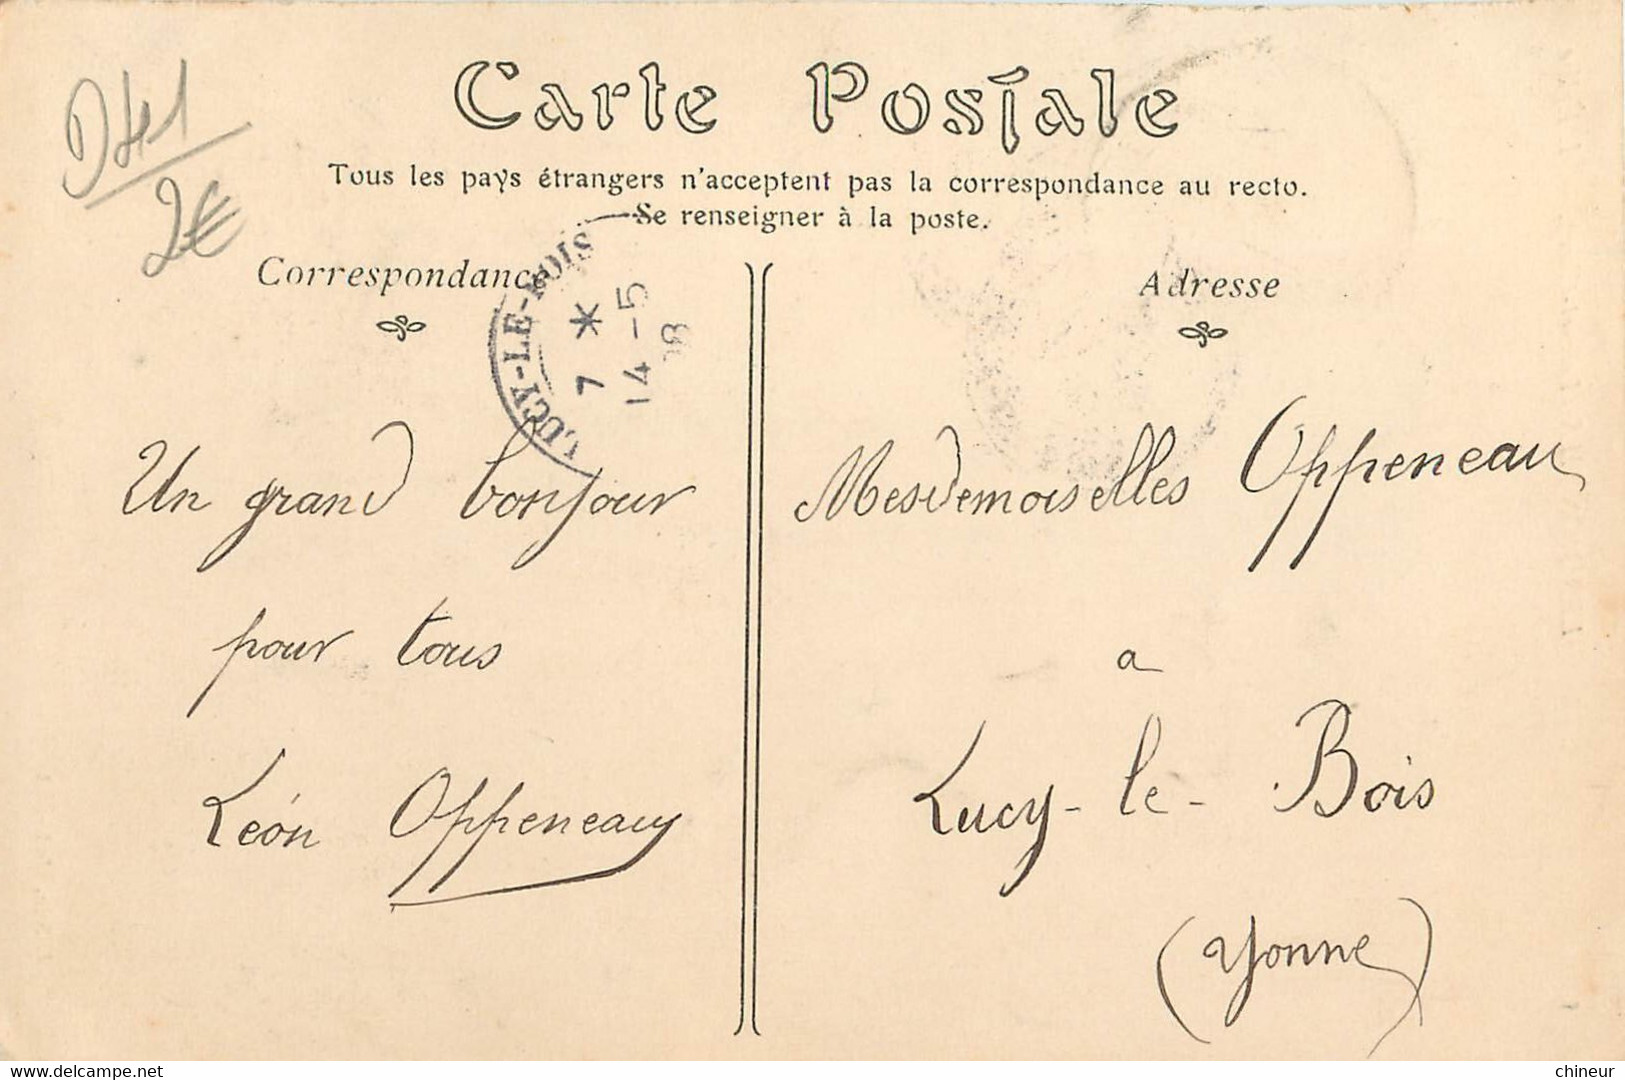 D41
2€
Carte Postale
Tous les pays étrangers n'acceptent pas la correspondance au recto.
Se renseigner à la poste.
Correspondance
Adresse
LUCY-LE-BOIS
7 *
14 -5
08
Un grand bonjour
pour tous
Léon Oppeneau
Mesdemoiselles Oppeneau
a
Lucy-le-Bois
(Yonne)
www.delcampe.net
chineur